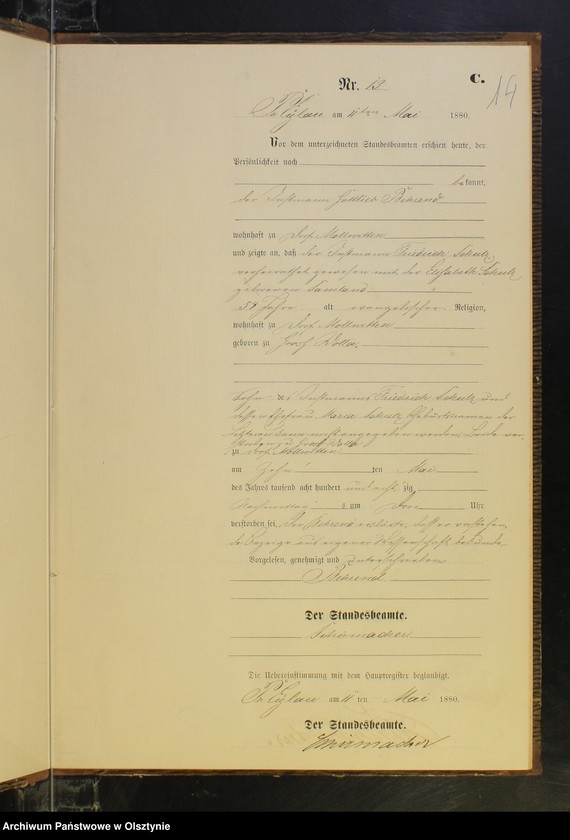 C.
14
Nr. 13
Pr. Eylau am 11ten Mai 1880.
Vor dem unterzeichneten Standesbeamten erschien heute, der
Persönlichkeit nach
bekannt,
der Instmann Gottlieb Behrend
wohnhaft zu Dorf Mollwitten
und zeigte an, daß der Instmann Friedrich Schulz
verheirathet gewesen mit der Elisabeth Schulz
geborenen Samland
59 Jahre alt evangelischer Religion,
wohnhaft zu Dorf Mollwitten
geboren zu Groß Wolla
Sohn des Instmanns Friedrich Schulz und
dessen Ehefrau Maria Schulz Geburtsnamen der
nicht angegeben werden
zu Dorf Mollwitten
am zehn ten Mai
des Jahres tausend acht hundert und acht zig
Nachmittags um drei Uhr
verstorben sei. Der Behrend erklärte,
aus eigener Wissenschaft bekunde
Vorgelesen, genehmigt und unterschrieben
Behrend
Der Standesbeamte.
Schumacher
Die Uebereinstimmung mit dem Hauptregister beglaubigt.
Pr. Eylau am 11 ten Mai 1880.
Der Standesbeamte.
Schumacher
Archiwum Państwowe w Olsztynie